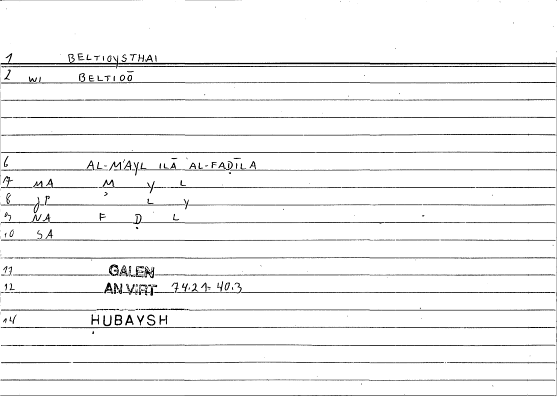 1 BELTIOYSTHAI
2 WI BELTIOŌ
6 AL-MAYL ILĀ AL-FAḌĪLA
7 MA M Y L
8 JP L Y
9 NA F Ḍ L
10 SA
11 GALEN
12 AN VIRT 74.21 40.3
14 HUBAYSH